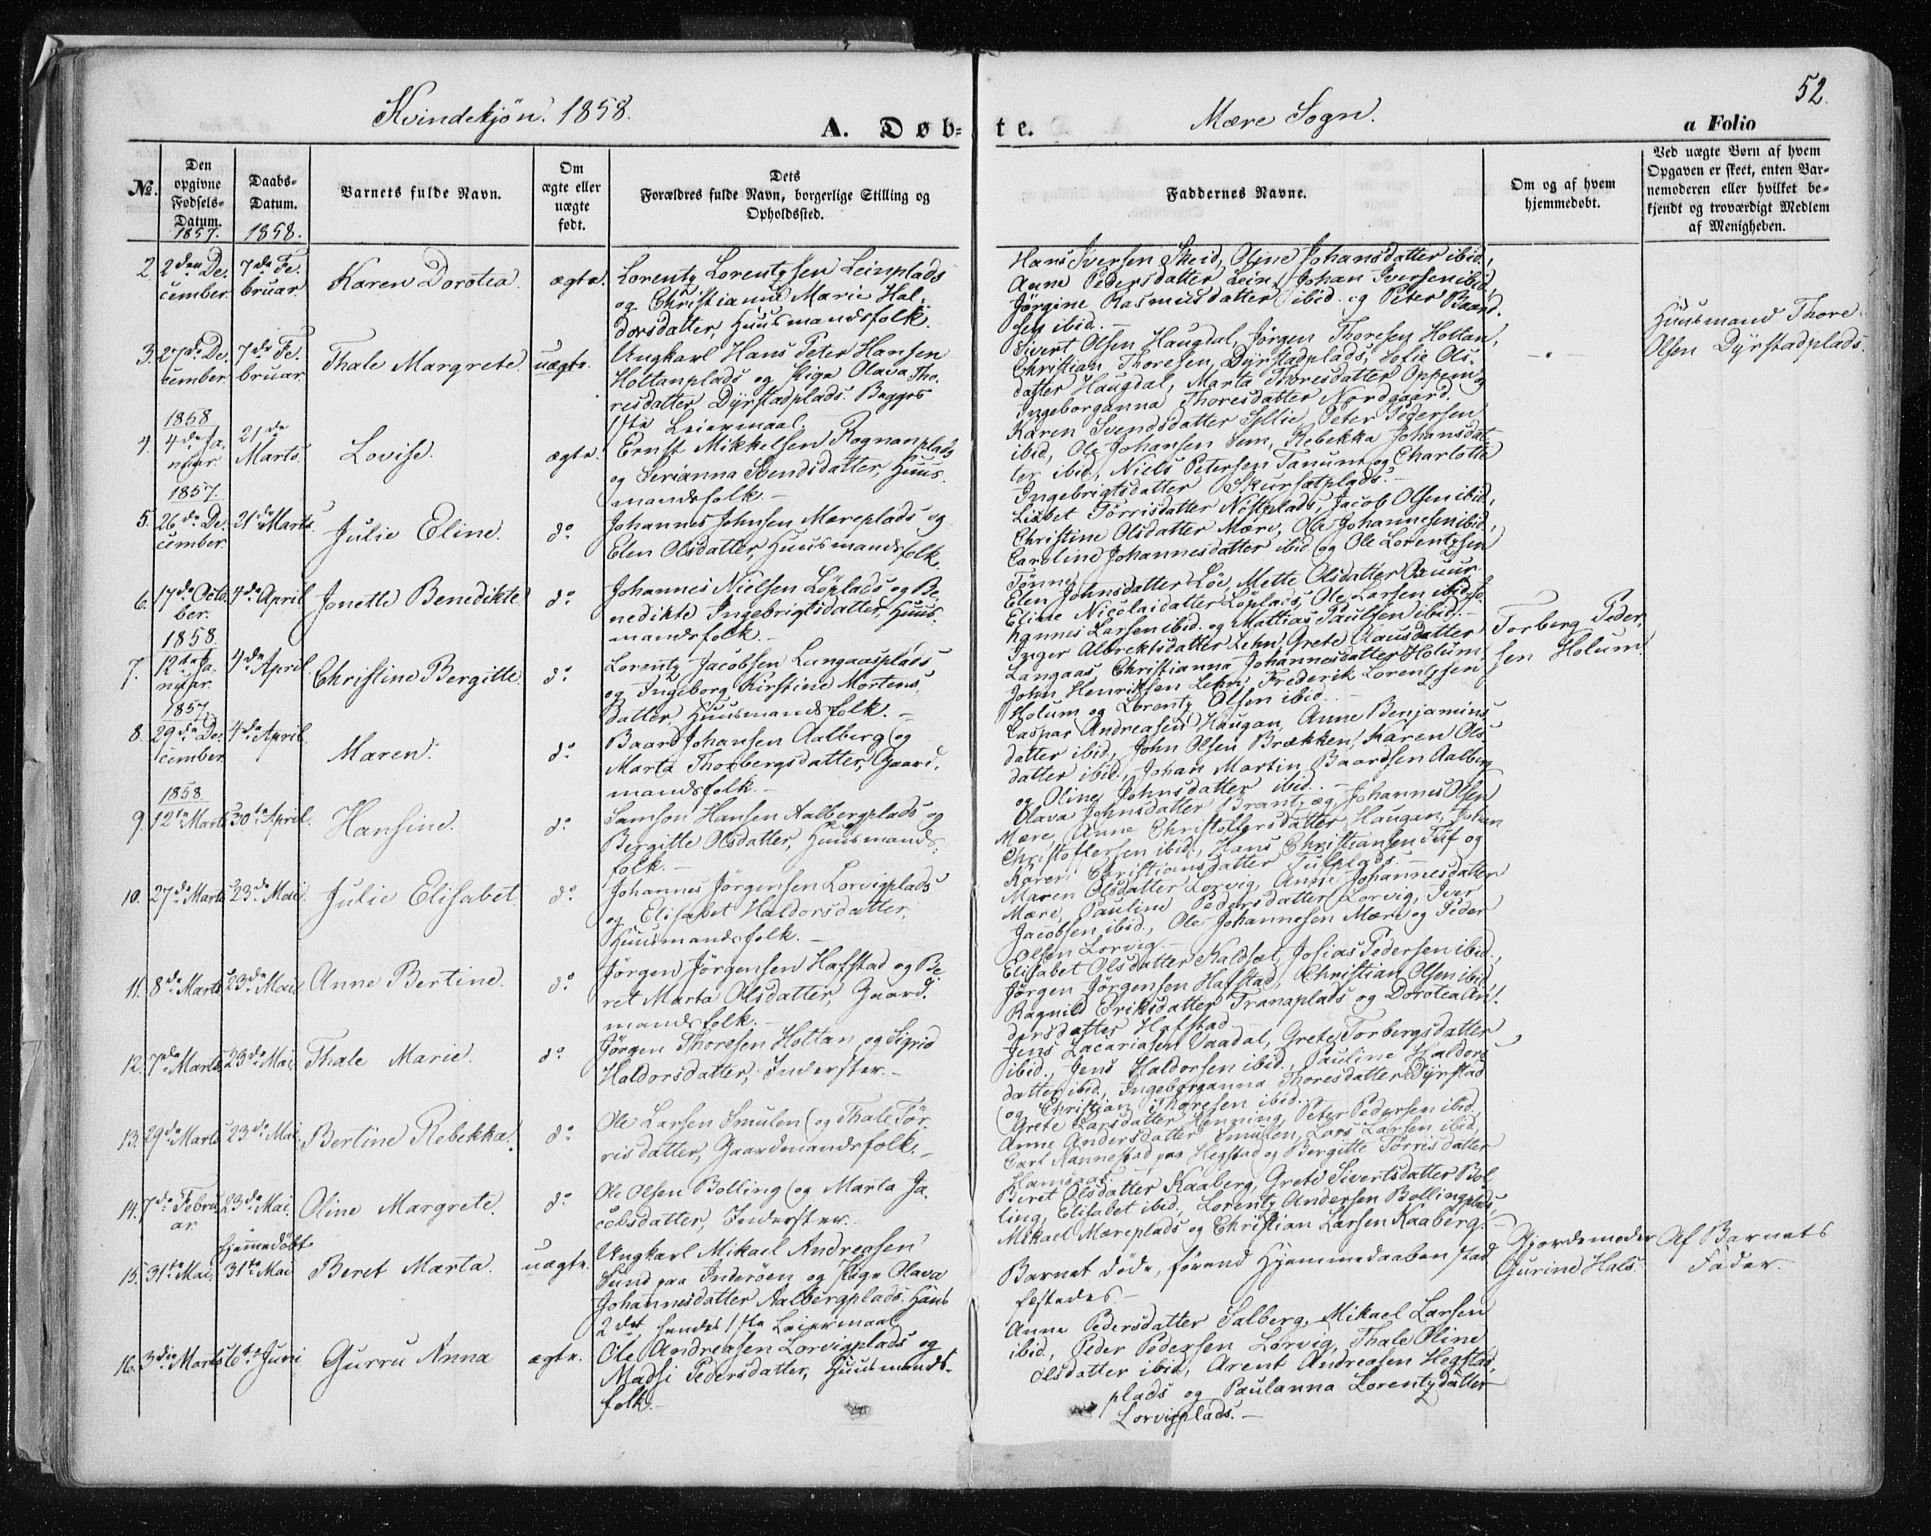 52.
Kvindekjøn. 1858.
A. Døb-
te.
Mære Sogn.
a Folio
No.
Den opgivne Fødsels-Datum.
Daabs-Datum.
Barnets fulde Navn.
Om ægte eller uægte født.
Dets Forældres fulde Navn, borgerlige Stilling og Opholdssted.
Faddernes Navne.
Om og af hvem hjemmedøbt.
Ved uægte Børn af hvem Opgaven er skeet, enten Barnemoderen eller hvilket bekjendt og troværdigt Medlem af Menigheden.
1857. 1858.
2. 2den December. 7de Februar. Karen Dorotea. ægte.
Lorentz Lorentzsen Leinplads
og Christianne Marie Hal-
dorsdatter, Huusmandsfolk.
Hans Iversen Skeid, Oline Johansdatter ibid,
Anne Pedersdatter Lein, Johan Iversen ibid,
Jørgine Rasmusdatter ibid. og Peter Baard-
sen ibid.
3. 27de December. 7de Februar. Thale Margrete. uægte.
Ungkarl Hans Peter Hansen
Hottanplads og Pige Olava Tho-
resdatter Dyrstadplads. Begges
1ste Leiermaal.
Sivert Olsen Haugdal, Jørgen Thoresen Hottan,
Christian Thoresen, Dyrstadplads, Sofie Ols-
datter Haugdal, Marta Thoresdatter Opfem og
Ingeborganna Thoresdatter Nordgaard.
Huusmand Thore
Olsen Dyrstadplads.
1858
4. 4de Januar. 21de Marts. Lovise. ægte.
Ernst Mikkelsen Rognanplads
og Serianna Svendsdatter, Huus-
mandsfolk.
Karen Svendsdatter Sellie, Peter Pedersen
ibid, Ole Johansen Sem, Rebekka Johansdat-
ter ibid, Niels Petersen Tanum og Charlotte
Ingebrigtsdatter Skursætplads.
1857.
5. 26de December. 21de Marts. Julie Eline. do
Johannes Johnsen Mæreplads og
Elen Olsdatter Huusmandsfolk.
Lisbet Torrisdatter Nøstplads, Jacob Olsen ibid,
Christine Olsdatter Mære, Ole Johannesen ibid,
Caroline Johannesdatter ibid og Ole Lorentzsen
Tønne.
6. 17de October. 4de April. Jonette Benedikte. do
Johannes Nielsen Löplads og Be-
nedikte Ingebrigtsdatter, Huus-
mandsfolk.
Elen Johnsdatter Löe, Mette Olsdatter Buur
Eline Nicolaidatter Löplads, Ole Larsen ibid, Jo-
hannes Larsen ibid. og Mattias Paulsen ibid.
1858.
7. 12te Januar. 4de April. Christine Bergitte. do
Lorentz Jacobsen Langaasplads
og Ingeborg Kirstine Mortens-
datter, Huusmandsfolk.
Inger Albrektsdatter Lehn, Grete Clausdatter
Langaas Christianna Johannesdatter Holum
John Henriksen Lehn, Frederik Lorentzsen
Holum og Lorentz Olsen ibid.
Torberg Peder-
sen Holum.
1857
8. 29de December. 4de April. Maren. do
Baard Johansen Aalberg og
Marta Thorbergsdatter, Gaard-
mandsfolk.
Caspar Andreasen Haugan, Anne Benjamins-
datter ibid, John Olsen Brækken, Karen Ols-
datter ibid, Johan Martin Baardsen Aalberg
og Oline Johnsdatter ibid.
1858.
9. 12te Marts 30te April. Hansine. do
Samson Hansen Aalbergplads og
Bergitte Olsdatter, Huusmands-
folk.
Olava Johnsdatter Brantz og Johannes Olsen
Mære, Anne Christoffersdatter Haugan, Johan
Christoffersen ibid, Hans Christiansen Tuf og
Karen Christiansdatter Tufplads.
10. 27de Marts 23de Mai Julie Elisabet do
Johannes Jörgensen Lorvigplads
og Elisabet Haldorsdatter,
Huusmandsfolk.
Maren Olsdatter Lorvig, Anne Johannesdatter
Mære, Pauline Pedersdatter Lorvig, Iver
Jacobsen ibid, Ole Johannesen Mære og Peder
Olsen Lorvig.
11. 8de Marts 23de Mai Anne Bertine. do
Jörgen Jörgensen Hafstad og Be-
ret Marta Olsdatter, Gaard-
mandsfolk.
Elisabet Olsdatter Kaldsæt, Josias Pedersen ibid,
Jörgen Jörgensen Hafstad, Christian Olsen ibid,
Ragnild Eriksdatter Tranaplads og Dorotea An-
dersdatter Hafstad.
12. 7de Marts 23de Mai. Thale Marie. do
Jörgen Thoresen Hottan og Sigrid
Haldorsdatter, Inderster.
Jens Zacariasen Vaadal, Grete Torbergsdatter
ibid., Jens Haldorsen ibid, Pauline Haldors-
datter ibid, Ingeborganna Thoresdatter Dyrstad
og Christian Thoresen ibid.
13. 29de Marts 23de Mai. Bertine Rebekka. do
Ole Larsen Smulen og Thale Tör-
risdatter, Gaardmandsfolk.
Grete Larsdatter Benning, Peter Pedersen ibid,
Anne Andersdatter Smulen, Lars Larsen ibid,
Carl Nannestad paa Hegstad og Bergitte Törrisdatter
14. 7de Februar. 23de Mai. Oline Margrete. do
Ole Olsen Bolling og Marta Ja-
cobsdatter, Inderster.
Beret Olsdatter Kaaberg, Grete Sivertsdatter Bol-
ling, Elisabet ibid, Lorentz Andersen Bollingplads,
Mikael Mæreplads og Christian Larsen Kaaberg.
hjemmedöbt
15. 31te Mai. 31te Mai Beret Marta. uægte.
Ungkarl Mikael Andreasen
Sund paa Inderöen og Pige Olava
Johannesdatter Aalbergplads. Hans
2det hendes 1ste Leiermaal
Barnet döde, förend Hjemmedaaben stad-
fæstedes.
Gjordemoder
Gurine Hals.
Af Barnets
Fader.
16. 3die Marts 6te Juni Gurru Anna ægte.
Ole Andreasen Lorvigplads og
Madsi Pedersdatter, Huusmands-
folk.
Anne Pedersdatter Salberg, Mikael Larsen
ibid, Peder Pedersen Lorvig, Thale Oline
Olsdatter ibid, Arent Andreasen Hegstad-
plads og Paulanna Lorentzdatter
Lorvigplads.